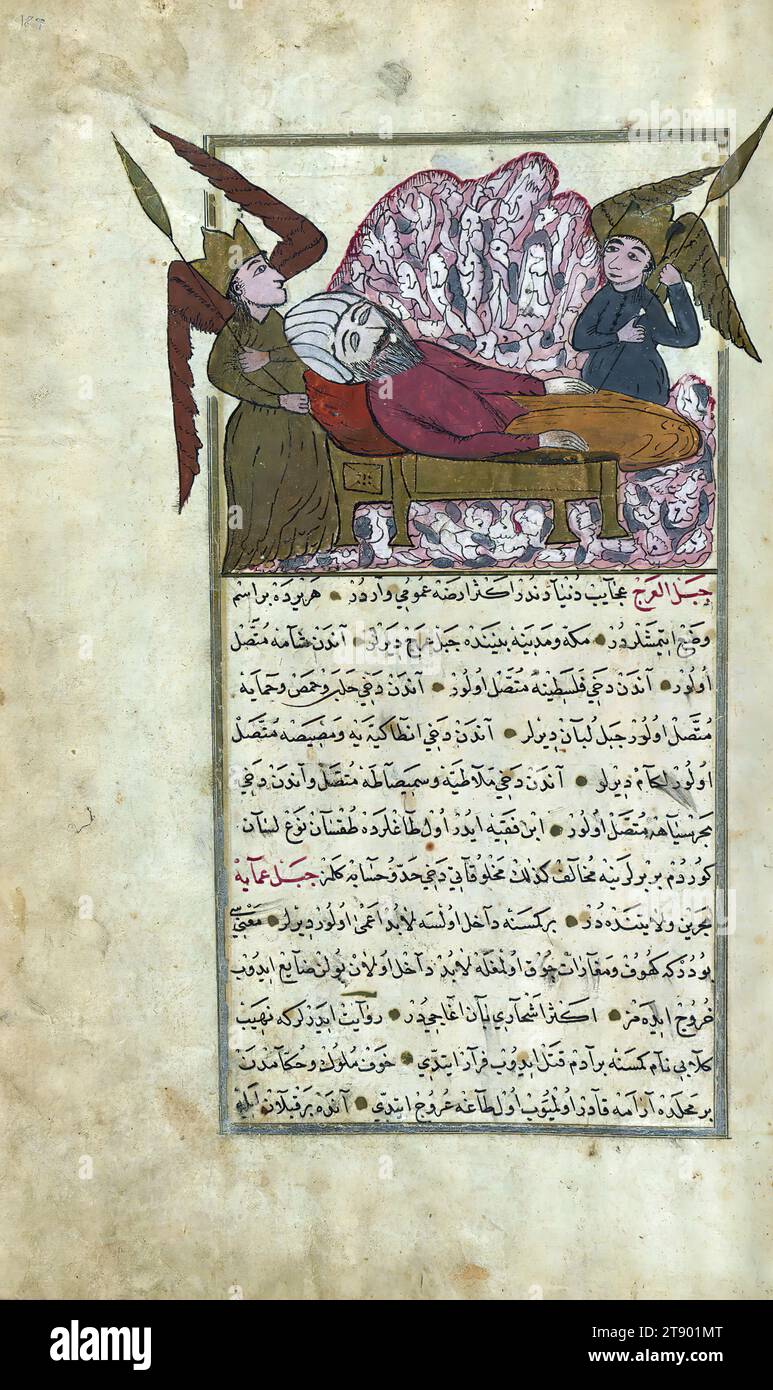 جبل العرج عجايب دنيادندر اكثر ارضه عمومي واردر هر يرده بر اسم
وضع ايتمشلردر مكه و مدينه بيننده جبل عرج ديرلر آندن شامه متصل
اولور آندن دخي فلسطينه متصل اولور آندن دخي حلب و حمص و حمايه
متصل اولور جبل لبنان ديرلر آندن دخي انطاكيه يه و مصيصه متصل
اولور لكام ديرلر آندن دخي ملاطيه و سميصاطه متصل و آندن دخي
بحر سياهه متصل اولور ابن فقيه ايدر اول طاغلرده طقسان نوع لسان
كوردم بربرلرينه مخالف كذلك مخلوقاتي دخي حد و حسابه كلمز جبل عمايه
بحرين ولايتنده در بر كمسنه داخل اولسه لابد اعمى اولور ديرلر معنيسي
بودركه كهوف و مغارات چوق اولمغله لابد داخل اولان يولن ضايع ايدوب
خروج ايده مز اكثر اشجاري بان اغاجيدر روايت ايدرلركه نهيب
كلابي نام كمسنه بر آدم قتل ايدوب فرار ايتدي خوف ملوك و حكامدن
بر محلده آرامه قادر اولميوب اول طاغه عروج ايتدي آنده بر قپلان ايله
alamy
alamy
Image ID: 2T901MT
www.alamy.com